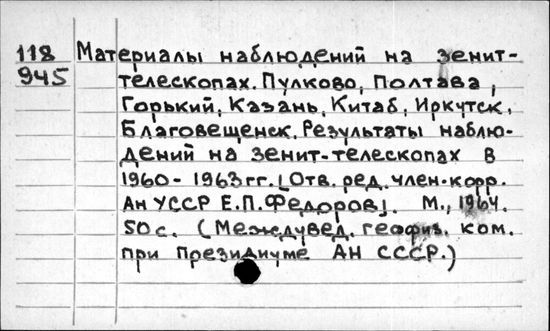 118 Материалы наблюдений на зенит-
945 телескопах. Пулково, Полтава,
Горький, Казань, Китаб, Иркутск,
Благовещенск. Результаты наблю-
дений на зенит-телескопах в
1960-1963 гг. [Отв. ред. член-корр.
АН УССР Е.П. Федоров]. М., 1964.
50 с. (Междувед. геофиз. ком.
при Президиуме АН СССР.)